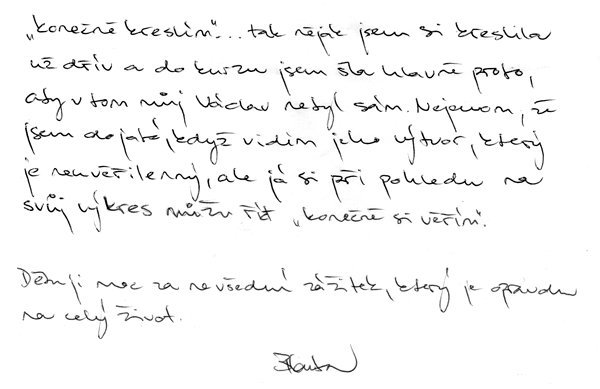 „konečně kreslím"... tak nějak jsem si kreslila
už dřív a do kurzu jsem šla hlavně proto,
aby v tom můj Václav nebyl sám. Nejenom, že
jsem dojatá, když vidím jeho výtvor, který
je neuvěřitelný, ale já si při pohledu na
svůj výkres můžu říct „konečně si věřím".
Děkuji moc za nevšední zážitek, který je opravdu
na celý život.